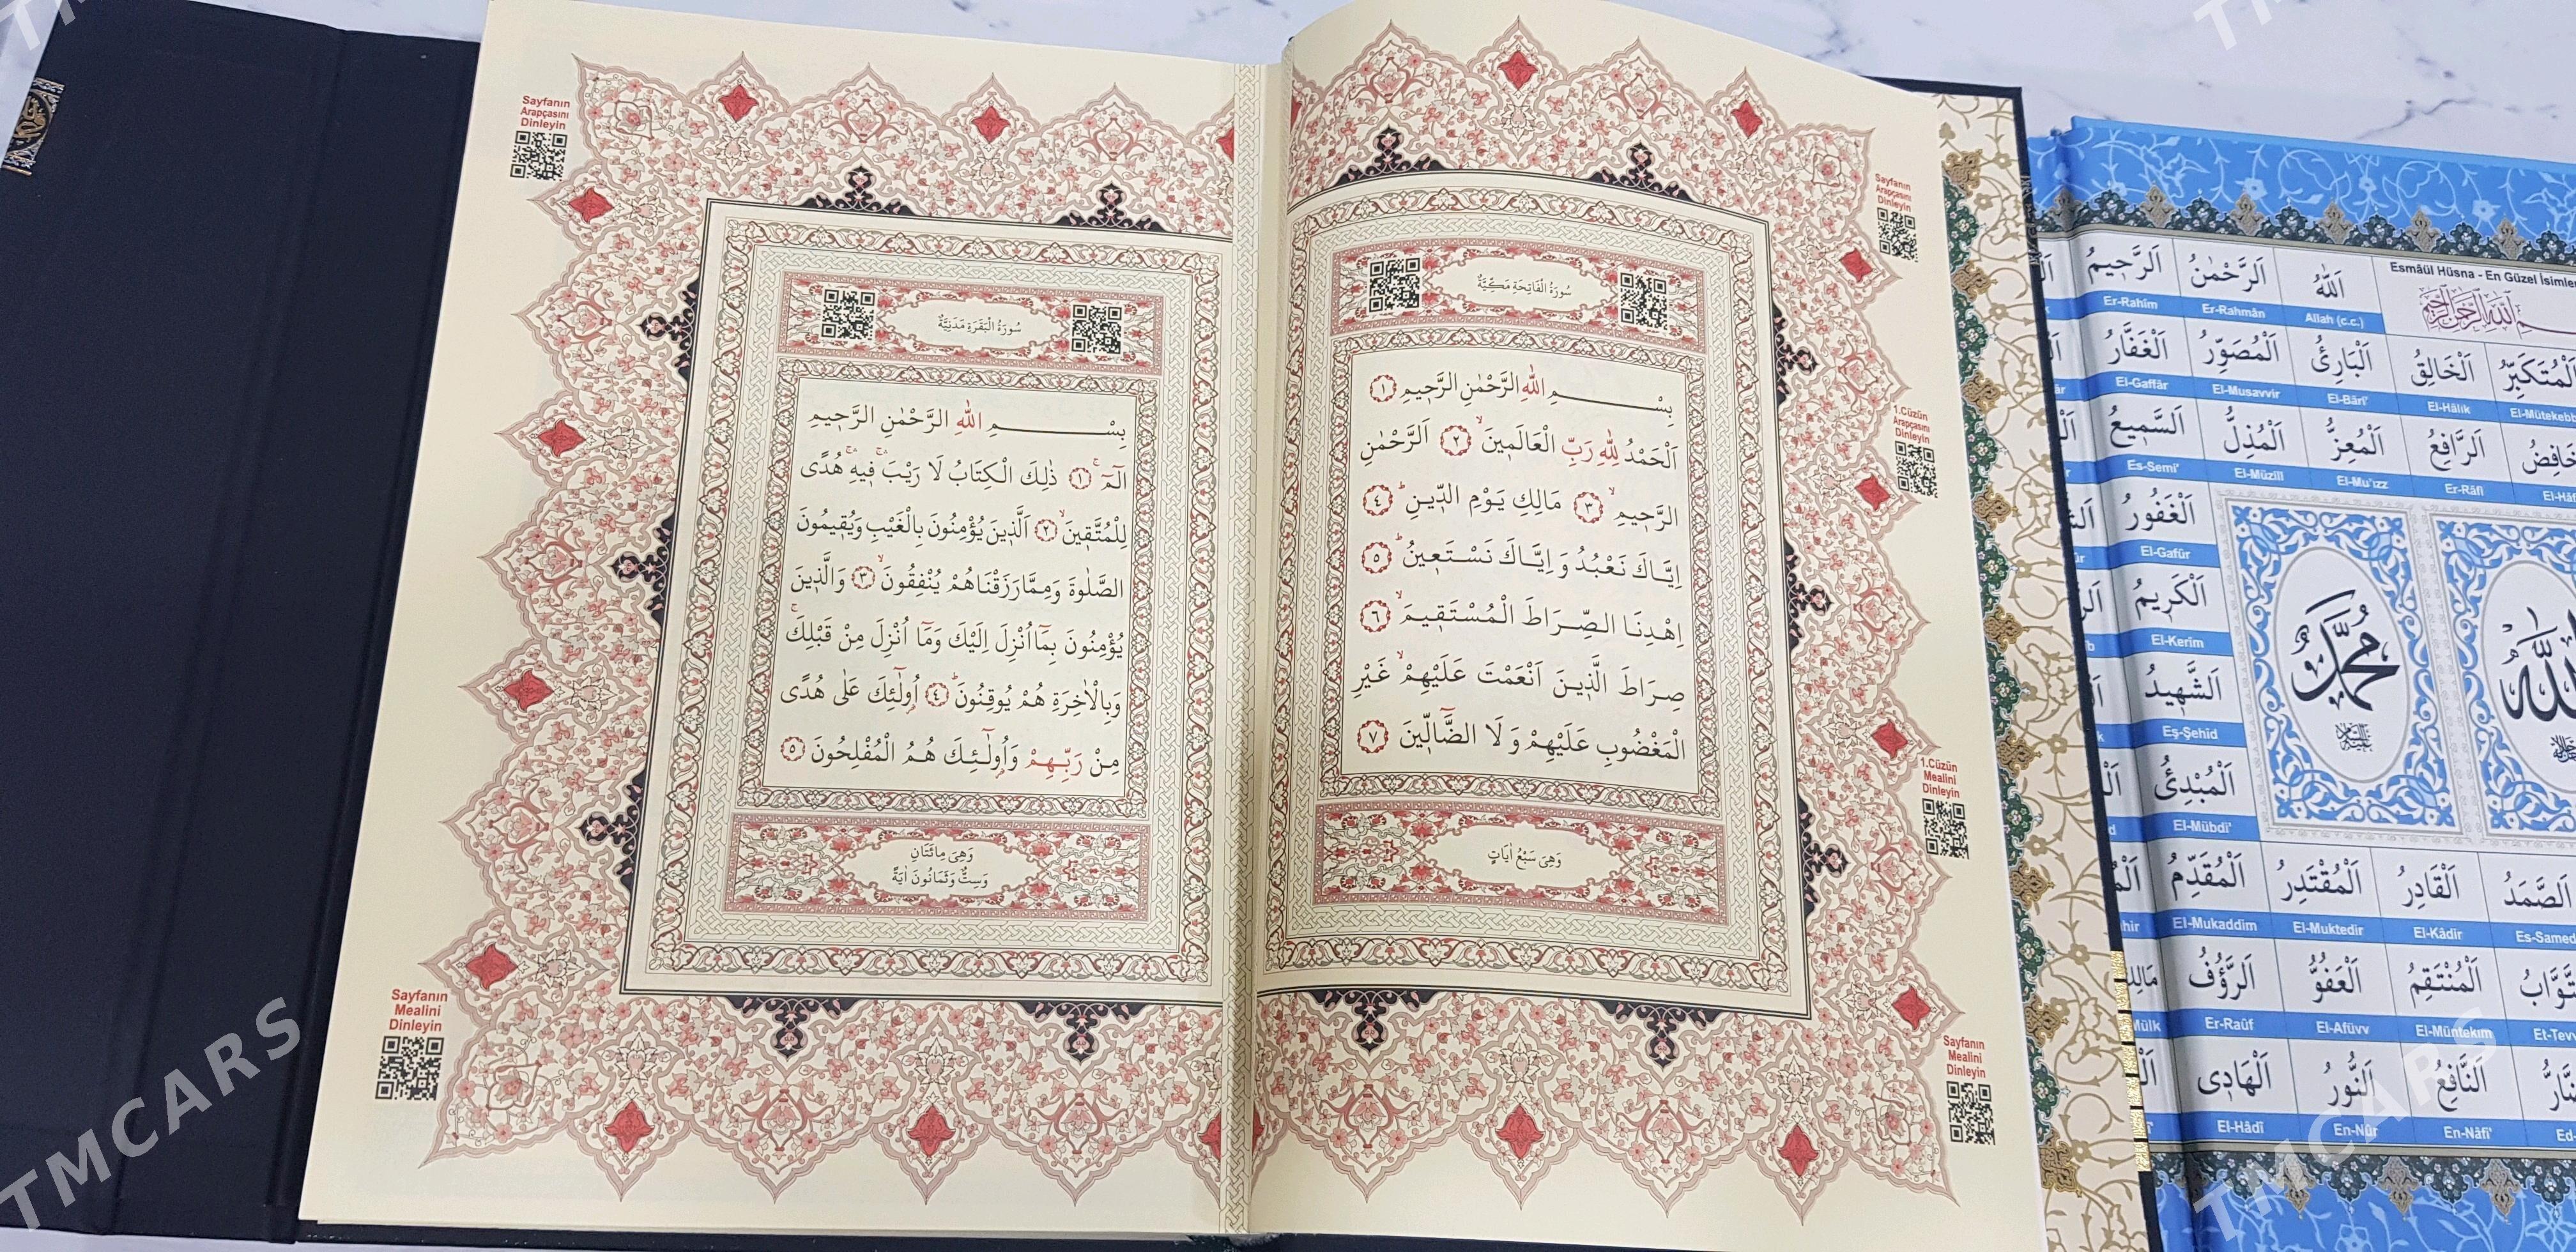 سُورَةُ الْفَاتِحَةِ مَكِّيَّةٌ
بِسْمِ اللّٰهِ الرَّحْمٰنِ الرَّحِيمِ ﴿١﴾
اَلْحَمْدُ لِلّٰهِ رَبِّ الْعَالَمِينَۙ ﴿٢﴾ اَلرَّحْمٰنِ
الرَّحِيمِۙ ﴿٣﴾ مَالِكِ يَوْمِ الدِّينِۜ ﴿٤﴾
اِيَّاكَ نَعْبُدُ وَاِيَّاكَ نَسْتَعِينُۜ ﴿٥﴾
اِهْدِنَا الصِّرَاطَ الْمُسْتَقِيمَۙ ﴿٦﴾
صِرَاطَ الَّذِينَ اَنْعَمْتَ عَلَيْهِمْۙ غَيْرِ
الْمَغْضُوبِ عَلَيْهِمْ وَلَا الضَّٓالِّينَ ﴿٧﴾
وَهِىَ سَبْعُ اٰيَاتٍ
سُورَةُ الْبَقَرَةِ مَدَنِيَّةٌ
بِسْمِ اللّٰهِ الرَّحْمٰنِ الرَّحِيمِ
الٓمٓۚ ﴿١﴾ ذٰلِكَ الْكِتَابُ لَا رَيْبَۚۛ فِيهِۚۛ هُدًى
لِلْمُتَّقِينَۙ ﴿٢﴾ اَلَّذِينَ يُؤْمِنُونَ بِالْغَيْبِ وَيُقِيمُونَ
الصَّلٰوةَ وَمِمَّا رَزَقْنَاهُمْ يُنْفِقُونَۙ ﴿٣﴾ وَالَّذِينَ
يُؤْمِنُونَ بِمَٓا اُنْزِلَ اِلَيْكَ وَمَٓا اُنْزِلَ مِنْ قَبْلِكَۚ
وَبِالْاٰخِرَةِ هُمْ يُوقِنُونَۜ ﴿٤﴾ اُو۬لٰٓئِكَ عَلٰى هُدًى
مِنْ رَبِّهِمْ وَاُو۬لٰٓئِكَ هُمُ الْمُفْلِحُونَ ﴿٥﴾
وَهِىَ مِائَتَانِ
وَسِتٌّ وَثَمَانُونَ اٰيَةً
Sayfanın
Arapçasını
Dinleyin
Sayfanın
Mealini
Dinleyin
Sayfanın
Arapçasını
Dinleyin
1.Cüzün
Arapçasını
Dinleyin
1.Cüzün
Mealini
Dinleyin
Sayfanın
Mealini
Dinleyin
Esmâül Hüsna - En Güzel
اَللّٰهُ اَلرَّحْمٰنُ اَلرَّحِيمُ
Allah (c.c.) Er-Rahmân Er-Rahîm
اَلْخَالِقُ اَلْبَارِئُ اَلْمُصَوِّرُ اَلْغَفَّارُ
El-Hâlik El-Bârî' El-Musavvir El-Gaffâr
اَلرَّافِعُ اَلْمُعِزُّ اَلْمُذِلُّ اَلسَّمِيعُ
Er-Râfi El-Mu'ızz El-Müzill Es-Semî'
اَلْغَفُورُ
El-Gafûr
اَلْكَرِيمُ
El-Kerîm
اَلشَّهِيدُ
Eş-Şehîd
اَلْمُبْدِئُ
El-Mübdi'
مُحَمَّد
اَلصَّمَدُ اَلْقَادِرُ اَلْمُقْتَدِرُ اَلْمُقَدِّمُ
Es-Samed El-Kâdir El-Muktedir El-Mukaddim
اَلْمُنْتَقِمُ اَلْعَفُوُّ اَلرَّؤُفُ
El-Müntekim El-Afüvv Er-Raûf
اَلنَّافِعُ اَلنُّورُ اَلْهَادِى
En-Nâfi' En-Nûr El-Hâdî
TMCARS
TMCARS